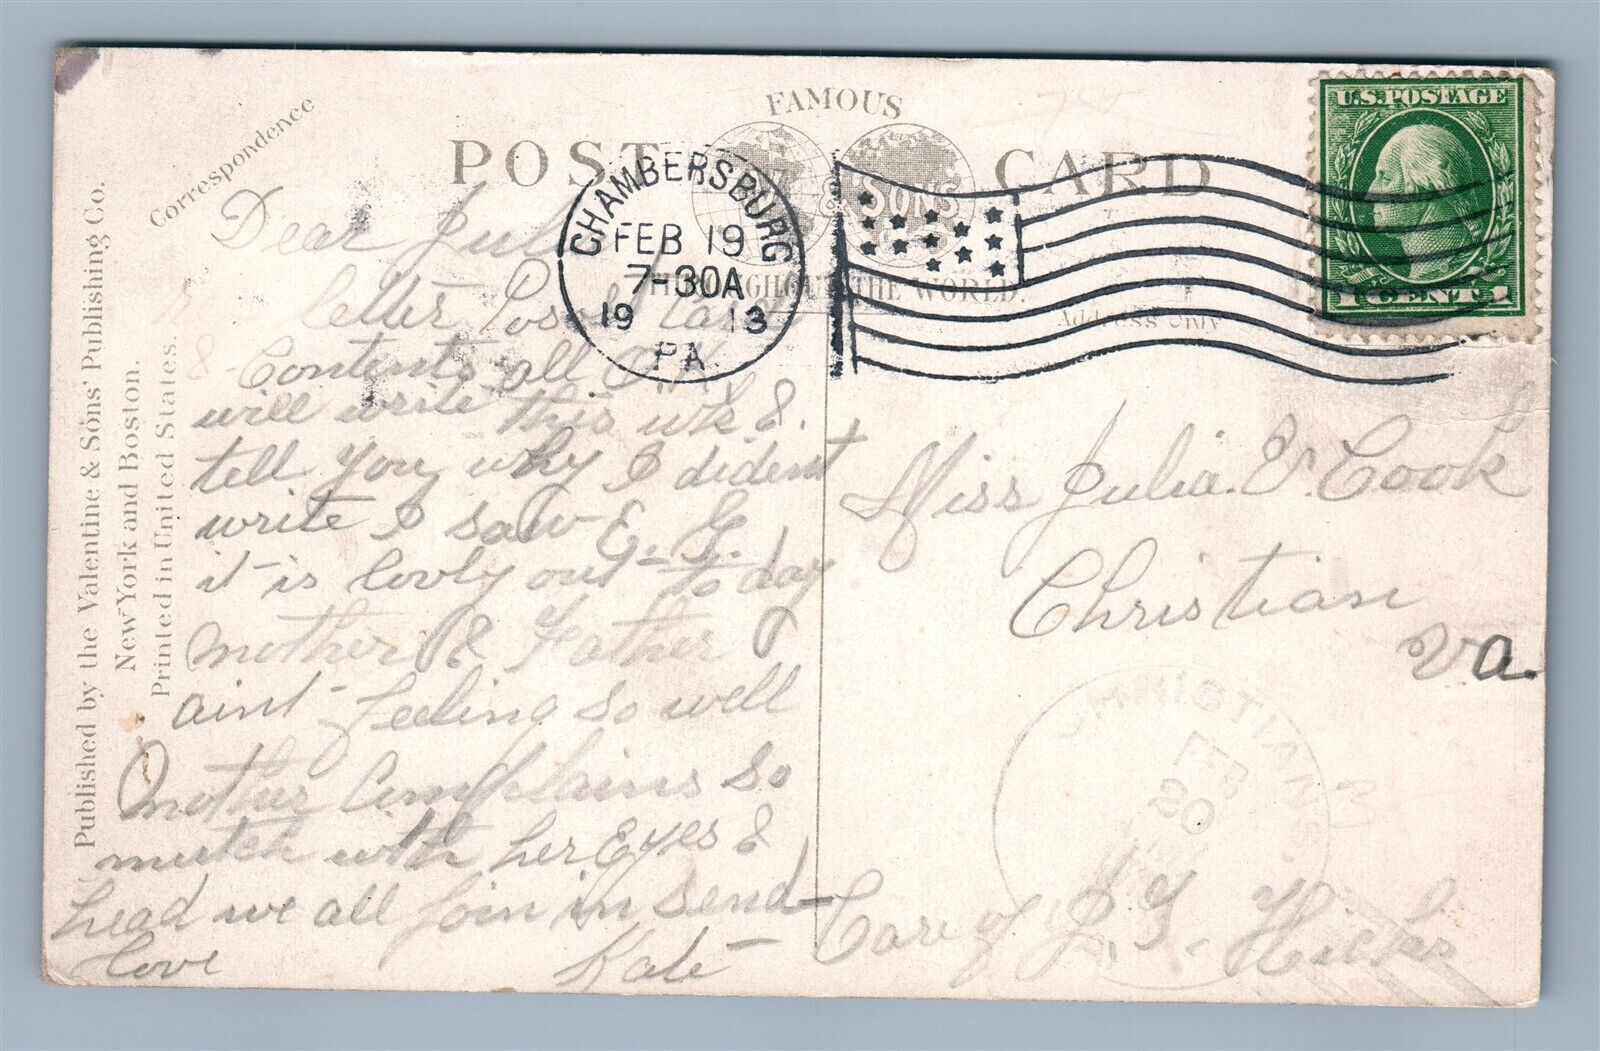 Correspondence
FAMOUS
POST CARD
& SONS
THROUGHOUT THE WORLD.
Address Only
CHAMBERSBURG
FEB 19
7-30A
19 13
PA.
U.S. POSTAGE
1 CENT 1
Published by the Valentine & Sons' Publishing Co.
New York and Boston.
Printed in United States.
Dear
letter Postal Card
& Contents all O.K.
will write this wk &
tell you why I dident
write I saw E. G.
it is lovly out to day
mother & Father
aint feeling so well
mother Complains so
mutch with her Eyes &
head we all join in send
love Kate
Miss Julia. E. Cook
Christian
Va.
CHRISTIANSB
FEB
20
Care of J. T. Hicks